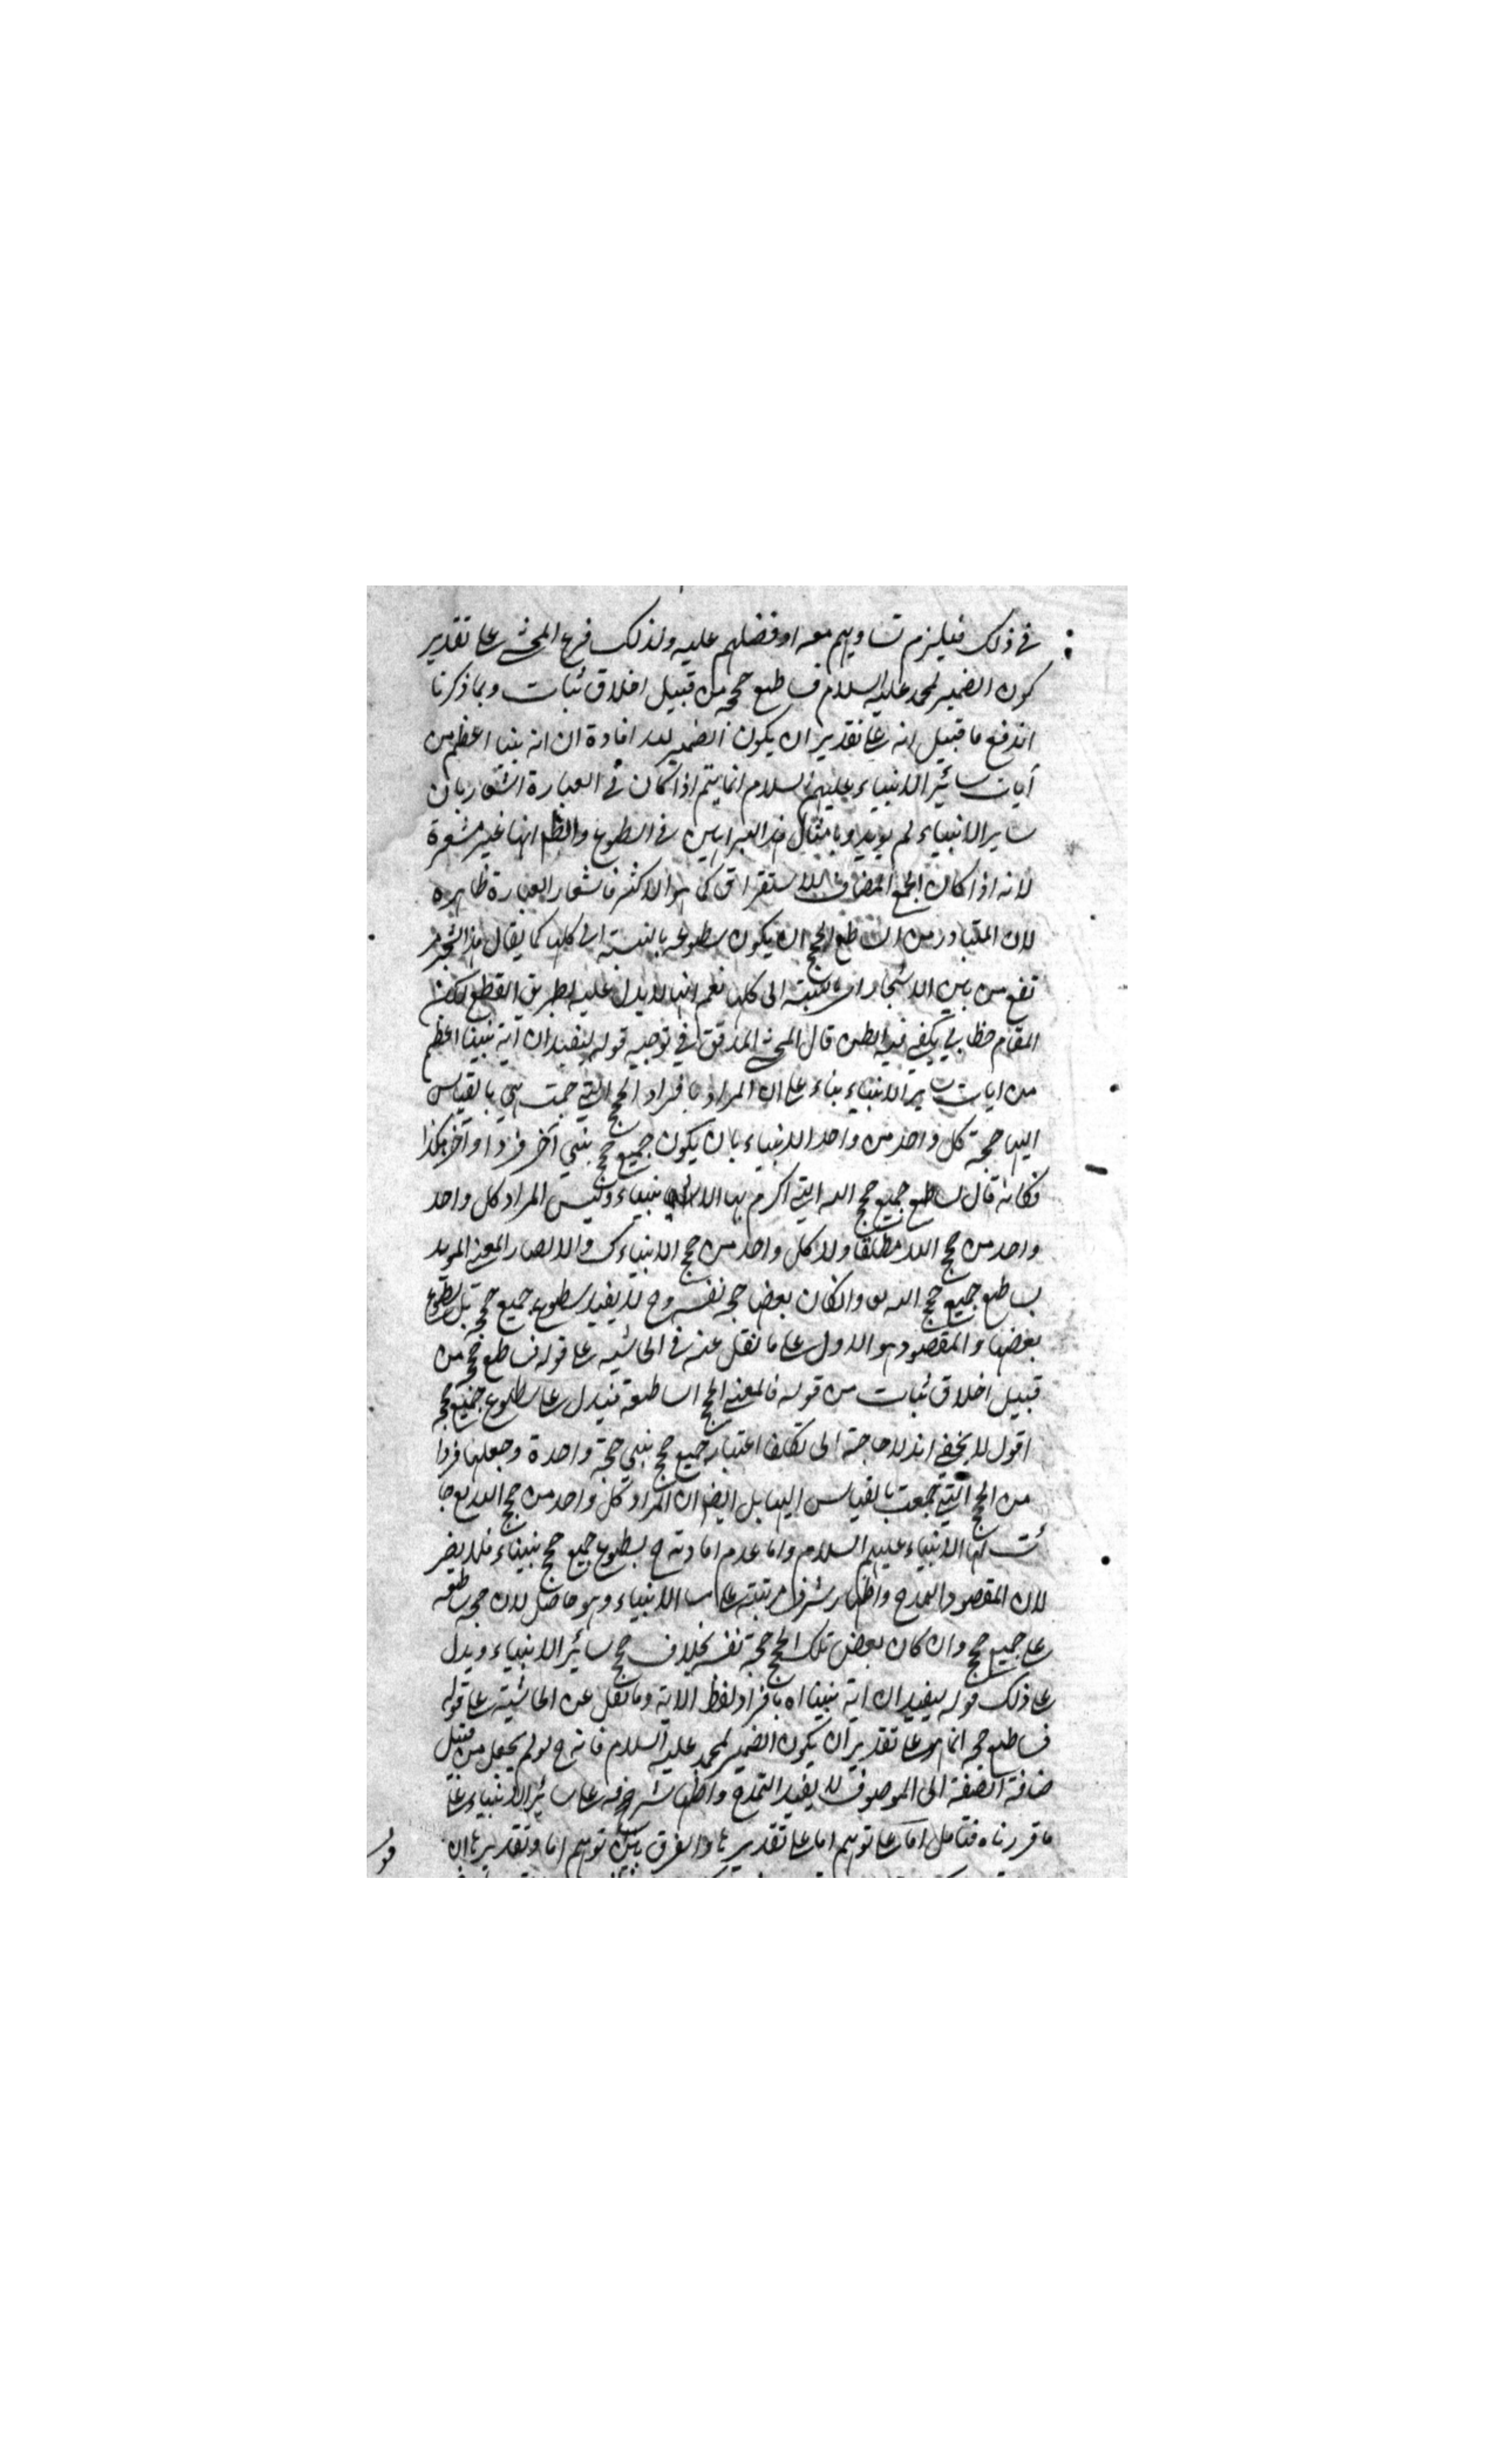 في ذلك فيلزم تساويهم معه او فضلهم عليه ولذلك فرع المحشي على تقدير
كون الضمير لمحمد عليه السلام فساطع حججه من قبيل اخلاق ثياب وبما ذكرنا
اندفع ما قيل انه على تقدير ان يكون الضمير لله افادة ان اية نبينا اعظم من
آيات سائر الانبياء عليهم السلام انما يتم اذا كان في العبارة اشعار بان
ساير الانبياء لم يويدوا بامثال هذه البراهين في السطوع والظ انها غير مشعرة
لانه اذا كان الجمع المضاف للاستغراق كما هو الاكثر فاشعار العبارة ظاهرة
لان المتبادر من الساطع الحجج ان يكون سطوعه بالنسبة الى كلها كما يقال هذا الشجر مر
تفع من بين الاشجار اي بالنسبة الى كلها نعم انها لا يدل عليه بطريق القطع لكن
المقام خطابي يكفي فيه الظن قال المحشي المدقق في توجيه قوله ليفيد ان آية نبينا اعظم
من ايات ساير الانبياء بناء على ان المراد بافراد الحجج التي جمعت هي بالقياس
اليها حجة كل واحد من واحد الانبياء بان يكون جميع حجج نبي آخر فردا وآخر هكذا
فكانه قال ساطع جميع حجج الله التي اكرم بها الانبياء وليس المراد كل واحد
واحد من حجج الله مطلقا ولا كل واحد من حجج الانبياء ك والا لصار المعنى المويد
بساطع جميع حجج الله وانكان بعضها حجج نفسه وح لا يفيد سطوع جميع حججه بل سطوع
بعضها والمقصود هو الاول على ما نقل عنه في الحاشيه على قوله فساطع حججه من
قبيل اخلاق ثياب من قوله فالمعنى الحجج الساطعة فيدل على سطوع جميع حججه
اقول لا يخفى انه لا حاجة الى تكلف اعتبار جميع حجج نبي حجة واحدة وجعلها فردا
من الحجج التي جمعت بالقياس اليها بل ايضا ان المراد كل واحد من حجج الله تع جا
ئت بها الانبياء عليهم السلام واما عدم افادته ح لسطوع جميع حجج نبيناء فلا يضر
لان المقصود المدح واظهار شرف مرتبته على سا الانبياء وهو حاصل لان حججه ساطعة
على جميع حجج وان كان بعض تلك الحجج حجة نفسه بخلاف حجج سائر الانبياء ويدل
على ذلك قوله ليفيد ان اية نبينا اه بافراد لفظ الاية وما نقل عن الحاشية على قوله
فساطع حججه انما هو على تقدير ان يكون الضمير لمحمد عليه السلام فانه ح لو لم يجعل من قبيل
ضافة الصفة الى الموصوف لا يفيد التمدح واظهار شرفه على سائر الانبياء على
ما قررناه فتامل اما على توهم اما على تقديرها والفرق بين توهم اما وتقديرها ان
قوله